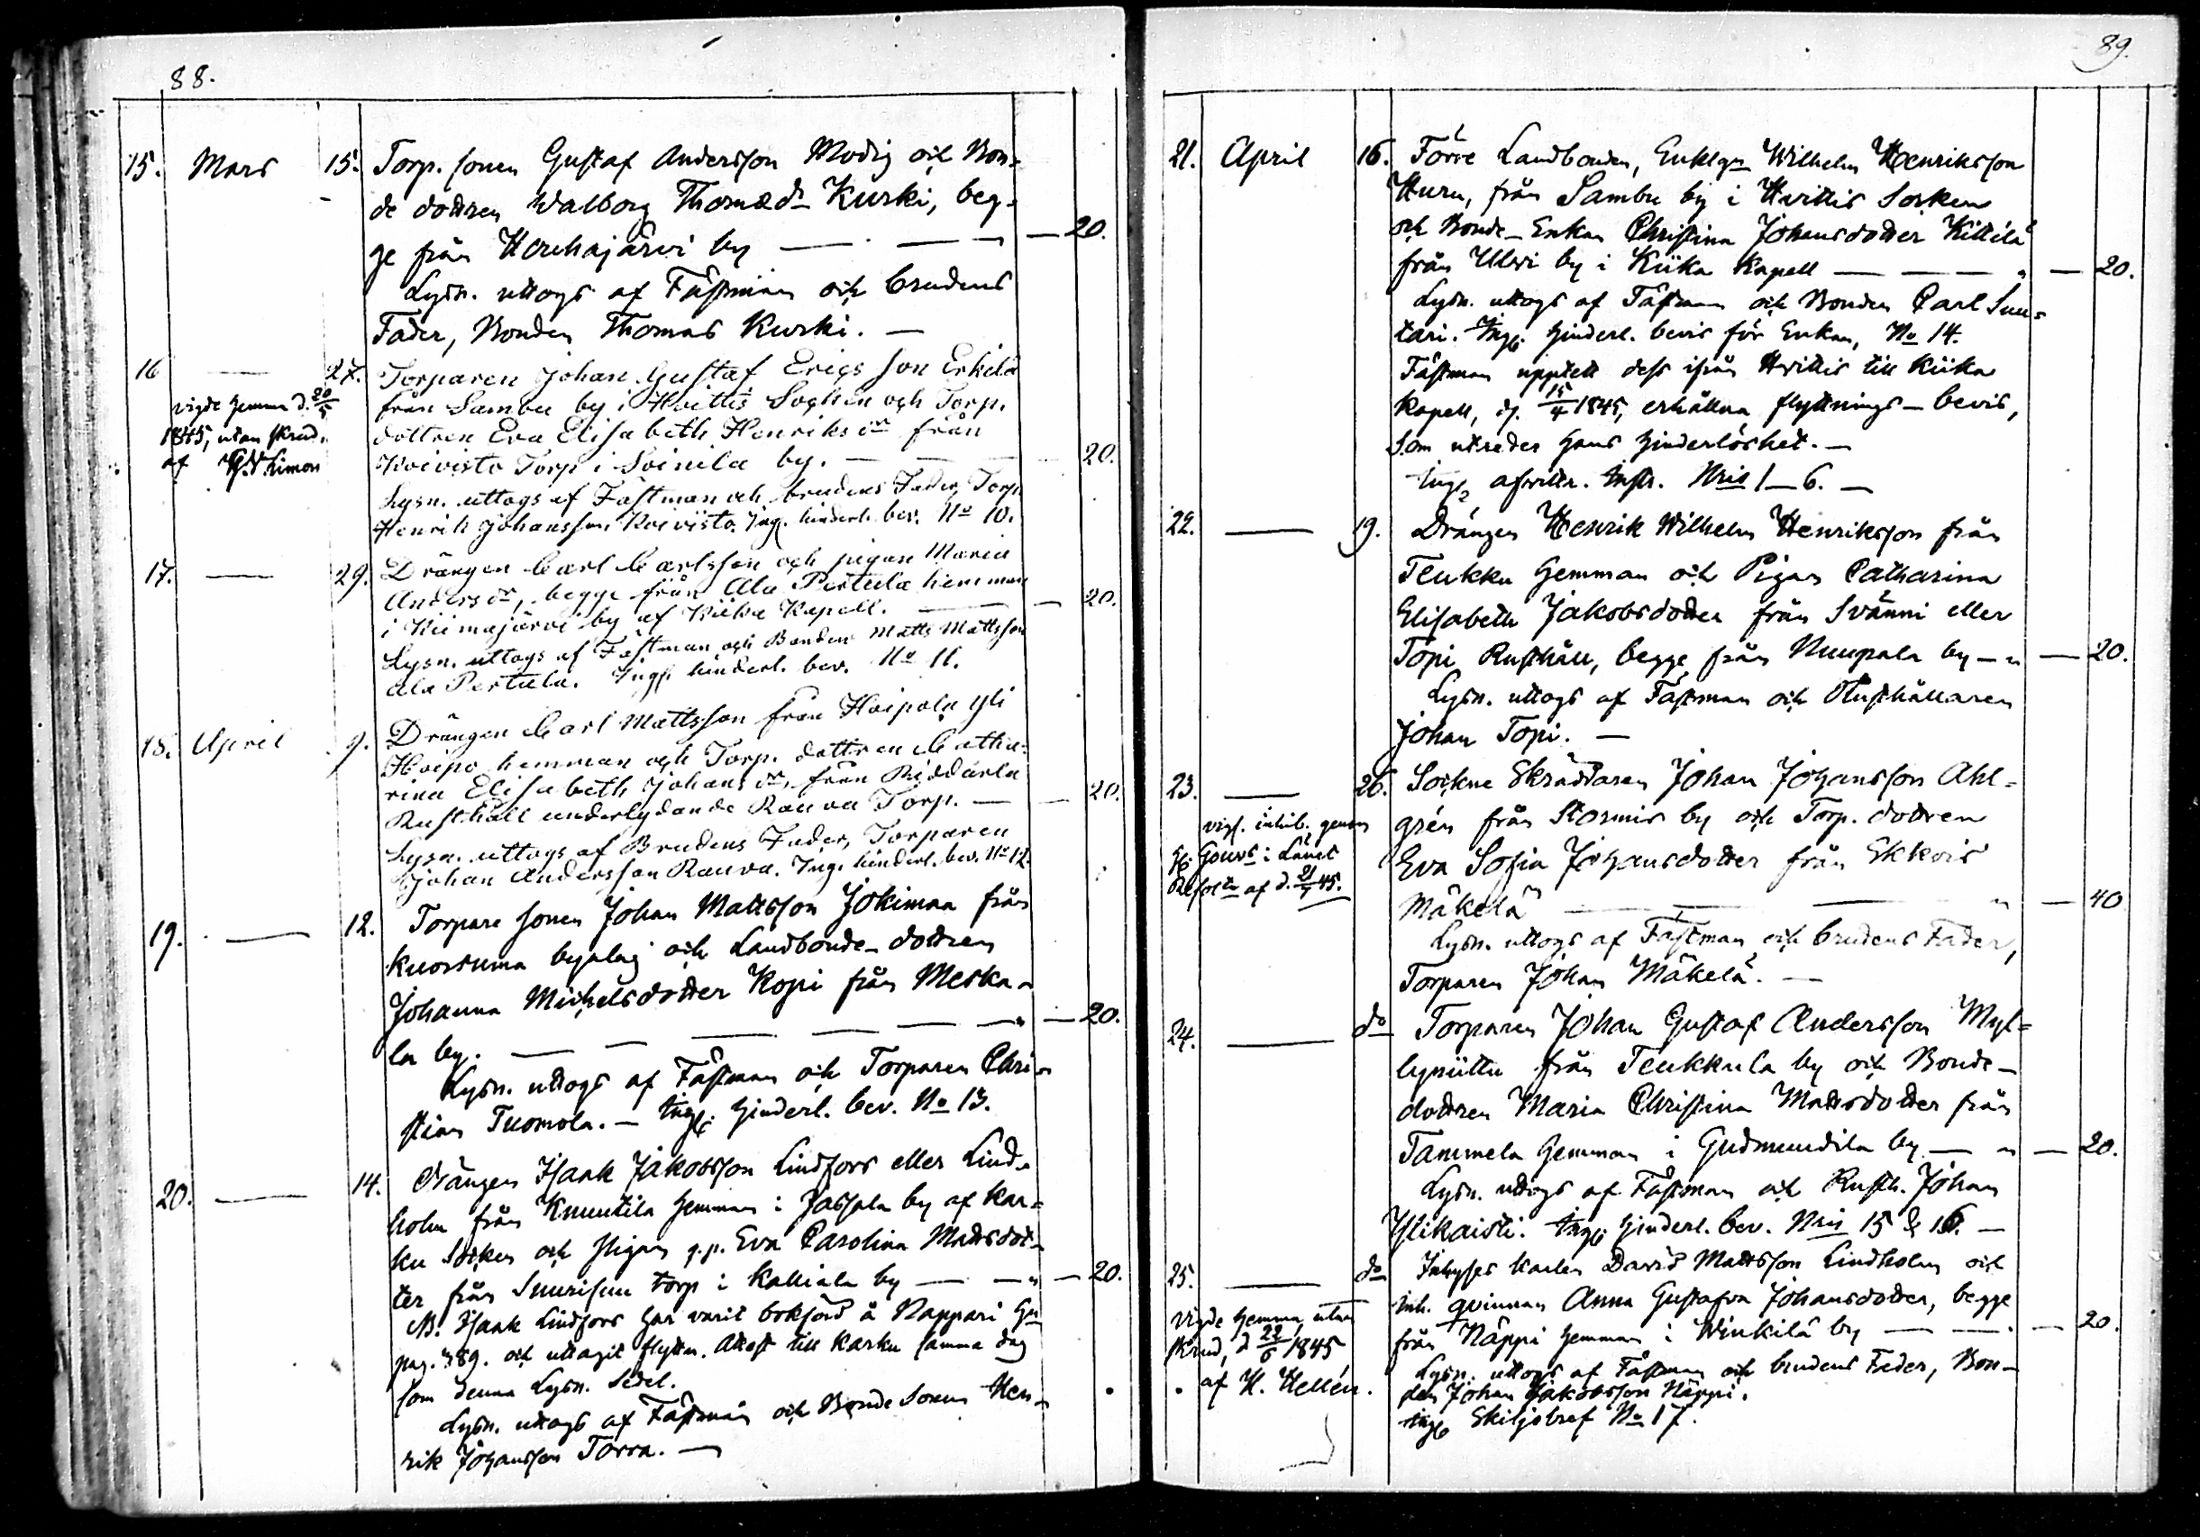 88.
15. Mars 15. Torp. sonen Gustaf Andersson Modig och Bon-
de dottren Walborg Thomædr Kurski, beg-
ge från Honkajärvi by — — — 20.
Lysn. uttogs af Fästman och brudens
Fader, Bonden Thomas Kurski. —
16 — 27. Torparen Johan Gustaf Ericsson Erkilä
vigde hemma d. 20/5
1845, utan skrud.
af Limon
från Sambu by i Hvittis Sochen och Torp.
dottren Eva Elisabeth Henriksdr från
Koivisto Torp i Soinila by. — — 20.
Lysn. uttogs af Fästman och brudens Fader, Torp.
Henrik Johansson Koivisto. Ing. hinderl. bev. No 10.
17. — 29. Drängen Carl Carlsson och pigan Maria
Andersdr, begge från Ala Pertula hemman
i Kiimajärvi by af Kiika Kapell. — — 20.
Lysn. uttogs af Fästman och Bonden Matts Mattsson
Ala Pertula. Ingf. hinderl. bev. No 11.
18. April 9. Drängen Carl Mattsson från Hoipola Yli
Hoipo hemman och Torp. dottren Catha-
rina Elisabeth Johansdr, från Riddarla
Rusthåll underlydande Rauva Torp. — — 20.
Lysn. uttogs af Brudens Fader, Torparen
Johan Andersson Rauva. Ing. hinderl. bev. No 12.
19. — 12. Torpare sonen Johan Mattsson Jokimaa från
Kuorsuma byalag och Landbonde-dottren
Johanna Michelsdotter Kopi från Meska-
la by. — — — — — 20.
Lysn. uttogs af Fästman och Torparen Chri-
stian Tuomola. — Ing. hinderl. bev. No 13.
20. — 14. Drängen Isaak Jakobsson Lindfors eller Lind-
holm från Knuutila hemman i Jassala by af Kar-
ku Socken och pigan q.p. Eva Carolina Mattsdot-
ter från Suurisuu torp i Kalliala by — — 20.
NB. Isaak Lindfors har varit bokförd å Nappari
pag. 389. och uttagit flyttn. Attest till Karku samma dag
som denna Lysn. Sedel.
Lysn. uttogs af Fästman och Bonde Sonen Hen-
rik Johansson Torra. —
89.
21. April 16. Förre Landbonden, Enklgn Wilhelm Henriksson
Huru, från Sambu by i Hvittis Socken
och Bonde-Enkan Christina Johansdotter Kittilä
från Ulvi by i Kiika Kapell — — — 20.
Lysn. uttogs af Fästman och Bonden Carl Suu-
tari. Ing. hinderl. bevis för Enkan, No 14.
Fästman upptett dess ifrån Hvittis till Kiika
Kapell, d. 15/4 1845, erhållna flyttnings-bevis,
som utreder hans hinderlöshet. —
Ing. afvittr. Instr. Nris 1—6. —
22. — 19. Drängen Henrik Wilhelm Henriksson från
Teukku hemman och Pigan Catharina
Elisabeth Jakobsdotter från Svänni eller
Topi Rusthåll, begge från Nuupala by — — 20.
Lysn. uttogs af Fästman och Rusthållaren
Johan Topi. —
23. — 26. Sockne Skräddaren Johan Johansson Ahl-
vigs. inhib. genom
Gouvs i Länet
Resol. af d. 21/7 45.
grén från Stormis by och Torp. dottren
Eva Sofia Johansdotter från Ekkois
Mäkelä — — — 40
Lysn. uttogs af Fästman och brudens Fader,
Torparen Johan Mäkelä. —
24. — do Torparen Johan Gustaf Andersson Myl-
lyniittu från Teukkula by och Bonde-
dottren Maria Christina Mattsdotter från
Tammela hemman i Gudmundila by — — 20.
Lysn. uttogs af Fästman och Rusth. Johan
Ylikaisti. Ing. hinderl. bev. Nris 15 & 16. —
25. — do Inhyses karlen David Mattsson Lindholm och
vigde hemma, utan
skrud, d 22/6 1845
af H. Hellén.
inh. qvinnan Anna Gustafva Johansdotter, begge
från Näppi hemman i Winkilä by — — 20.
Lysn. uttogs af Fästman och brudens Fader, Bon-
den Johan Jakobsson Näppi.
Ing. Skiljobref No 17.